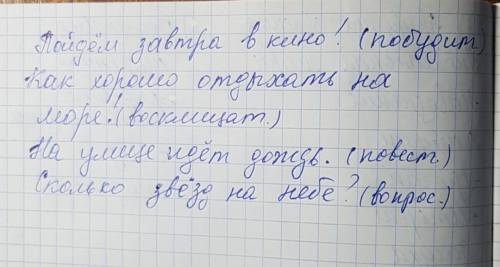 Пойдём завтра в кино! (побудит.)
Как хорошо отдыхать на
море! (восклицат.)
На улице идёт дождь. (повест.)
Сколько звёзд на небе? (вопрос.)